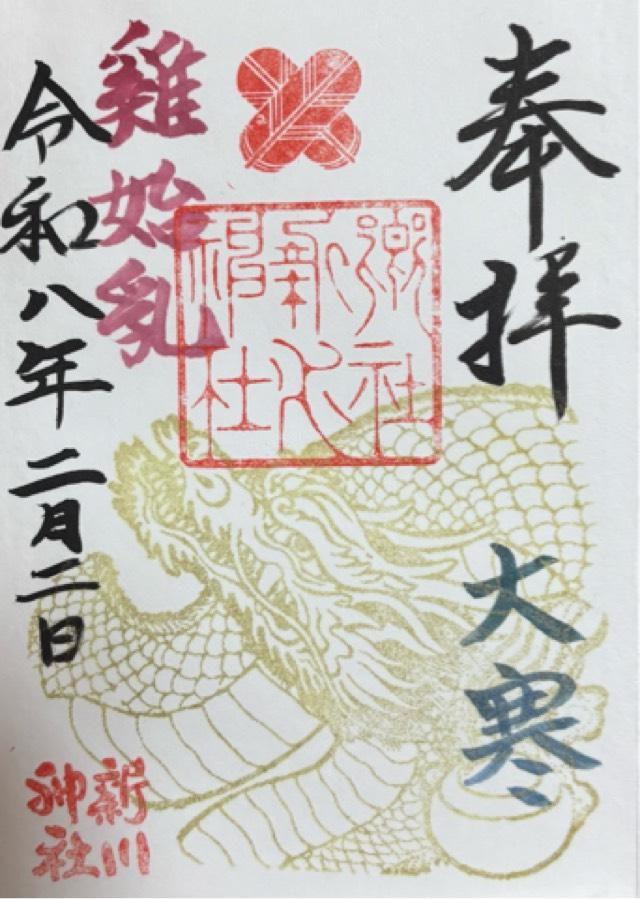 奉拝
大寒
郷社
新川
神社
雞始乳
令和八年二月二日
新川
神社